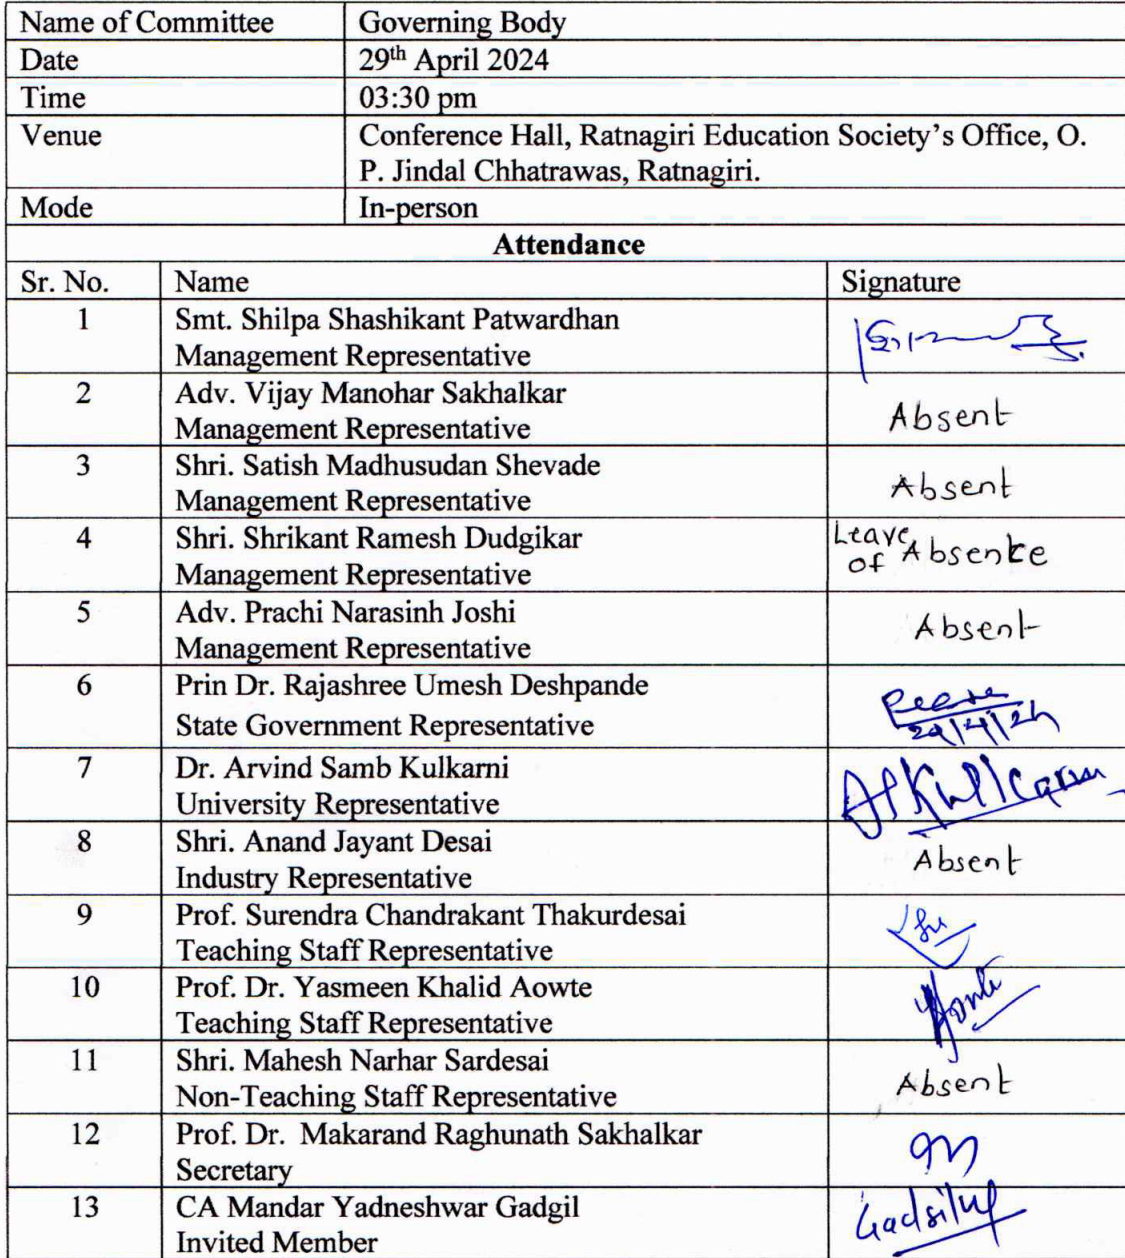 Name of Committee Governing Body
Date 29th April 2024
Time 03:30 pm
Venue Conference Hall, Ratnagiri Education Society's Office, O.
P. Jindal Chhatrawas, Ratnagiri.
Mode In-person
Attendance
Sr. No. Name Signature
1 Smt. Shilpa Shashikant Patwardhan
Management Representative
2 Adv. Vijay Manohar Sakhalkar
Management Representative Absent
3 Shri. Satish Madhusudan Shevade
Management Representative Absent
4 Shri. Shrikant Ramesh Dudgikar Leave
Management Representative of Absence
5 Adv. Prachi Narasinh Joshi
Management Representative Absent
6 Prin Dr. Rajashree Umesh Deshpande
State Government Representative
7 Dr. Arvind Samb Kulkarni
University Representative
8 Shri. Anand Jayant Desai
Industry Representative Absent
9 Prof. Surendra Chandrakant Thakurdesai
Teaching Staff Representative
10 Prof. Dr. Yasmeen Khalid Aowte
Teaching Staff Representative
11 Shri. Mahesh Narhar Sardesai
Non-Teaching Staff Representative Absent
12 Prof. Dr. Makarand Raghunath Sakhalkar
Secretary
13 CA Mandar Yadneshwar Gadgil
Invited Member